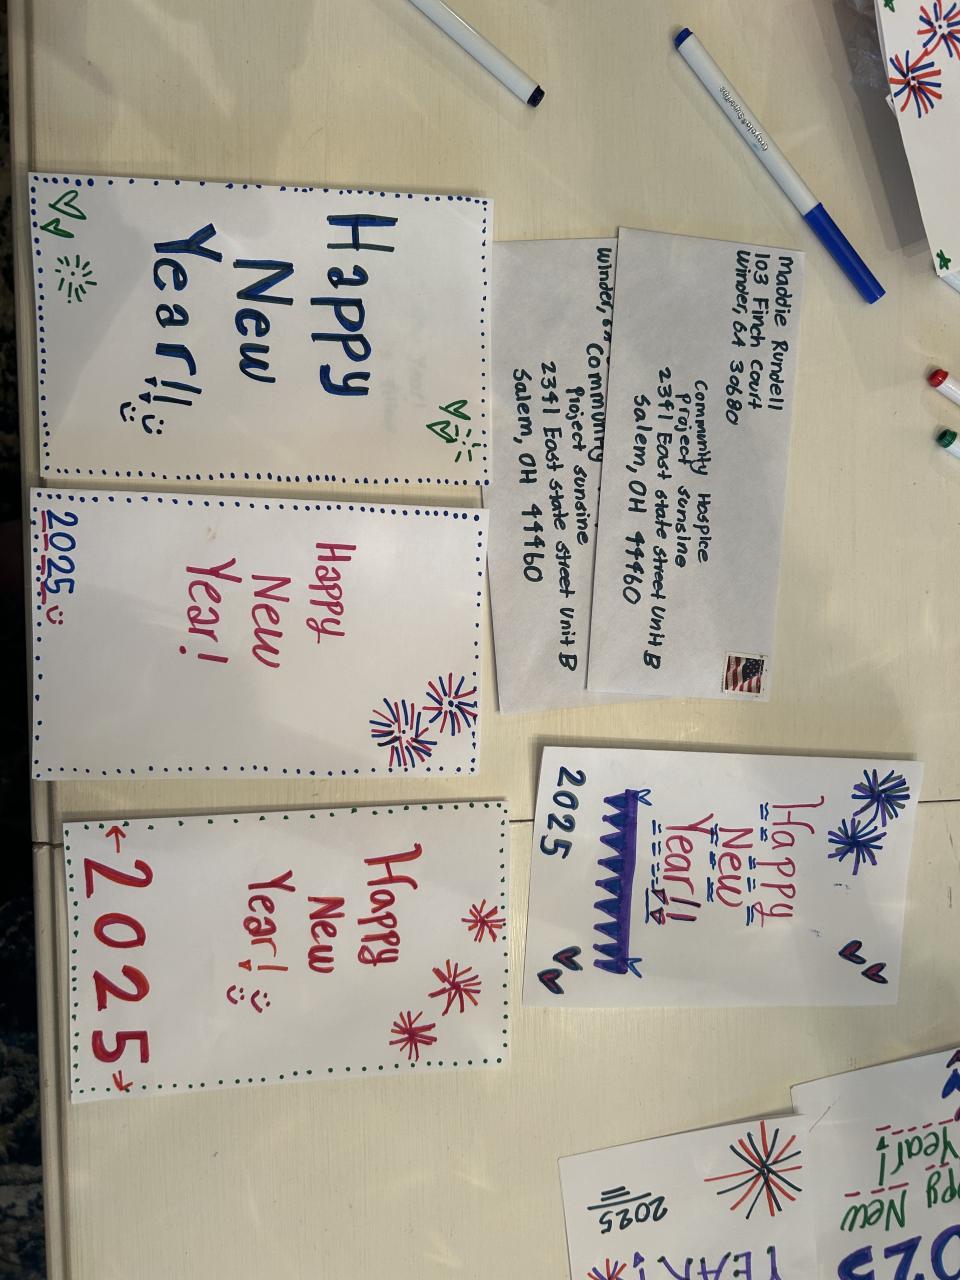 Happy
New
Year!!
Happy
New
Year!
2025
Happy
New
Year!
2025
Maddie Rundell
103 Finch Court
Winder, GA 30680
Community Hospice
project sunsine
2341 East state street Unit B
Salem, OH 44460
Winder, GA
Community
project sunsine
2341 East state street Unit B
Salem, OH 44460
Happy
New
Year!!
2025
2025
YEAR!
New
Year!
Crayola SuperTips